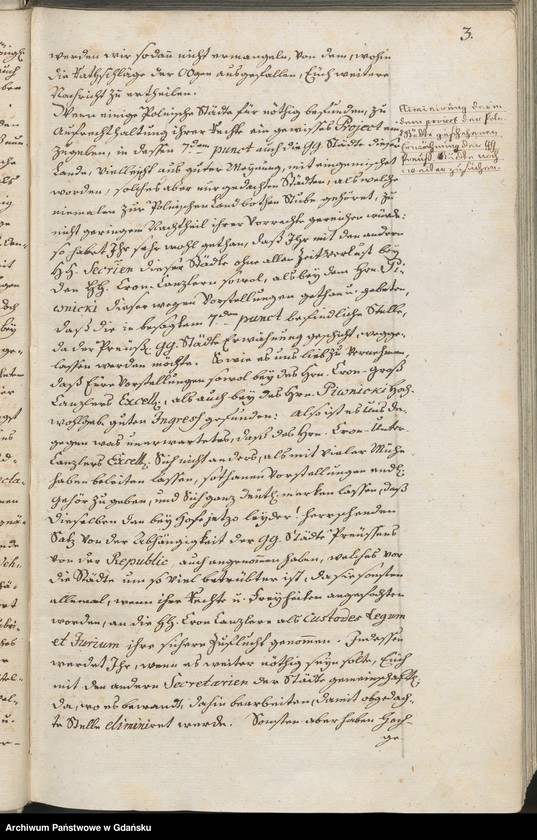 3.
werden wir sodann nicht ermangeln, von dem, wohin
die Rathschläge der OOgen ausgefallen, Euch weitere
Nachricht zu ertheilen.
Wenn einige Polnische Städte für nöthig befunden, zu
Aufrechthaltung ihrer Rechte ein gewisses Project ein
zugeben, in dessen 7den punct auch die gg. Städte dieser
Lande, vielleicht aus guter Meynung, mit eingemischet
worden, solches aber nurgedachten Städten, als welche
niemalen zur Polnischen Landbothen Stube gehöret, zu
nicht geringem Nachtheil ihrer Vorrechte gereichen würde:
so habet Ihr sehr wohl gethan, daß Ihr mit den andern
HH. Secrien dieser Städte ohne allen Zeitverlust bey
den HH. Cron-Canzlern sowol, als bey dem Hrn. Pi-
wnicki dieser wegen Vorstellungen gethan u. gebeten,
daß die in besagtem 7den punct befindliche Stelle,
da der Preuß. gg. Städte Erwähnung geschieht, wegge-
lassen werden möchte. So wie es uns lieb zu vernehmen,
daß Eure Vorstellungen sowol bey des Hrn. Cron-Groß
Canzlers Excell., als auch bey des Hrn. Piwnicki Hoch-
wohlgeb. guten Ingress gefunden: Also ist es uns da-
gegen was unerwartetes, daß des Hrn. Cron-Unter-
Canzlers Excell. Sich nicht anders, als mit vieler Mühe
haben beleiten lassen, sothanen Vorstellungen endl.
Gehör zu geben, und Sich ganz deutl. merken lassen, daß
Dieselben den bey Hofe jetzo leyder! herrschenden
Satz von der Abhängigkeit der gg. Städte Preussens
von der Republic, auch angenommen haben, welches vor
die Städte um so viel betrübter ist, da sie sonsten
allemal, wenn ihre Rechte u. Freyheiten angefochten
worden, an die HH. Cron Canzlere als Custodes Legum
et Jurium ihre sichere Zuflucht genommen. Indessen
werdet Ihr, wenn es weiter nöthig seyn solte, Euch
mit den andern Secretarien der Städte gemeinschaftl.
da, wo es bewandt, dahin bearbeiten, damit obgedach-
te Stelle eliminiret werde. Sonsten aber haben Hoch-
ge-
Eliminirung der in
dem project der Poln.
Städte geschehenen
Erwähnung der gg.
Preuß. Städte noch
weiter zu suchen.
Archiwum Państwowe w Gdańsku